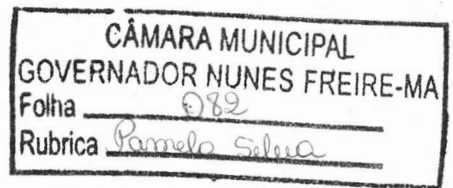 CÂMARA MUNICIPAL
GOVERNADOR NUNES FREIRE-MA
Folha 082
Rubrica Pamela Silva